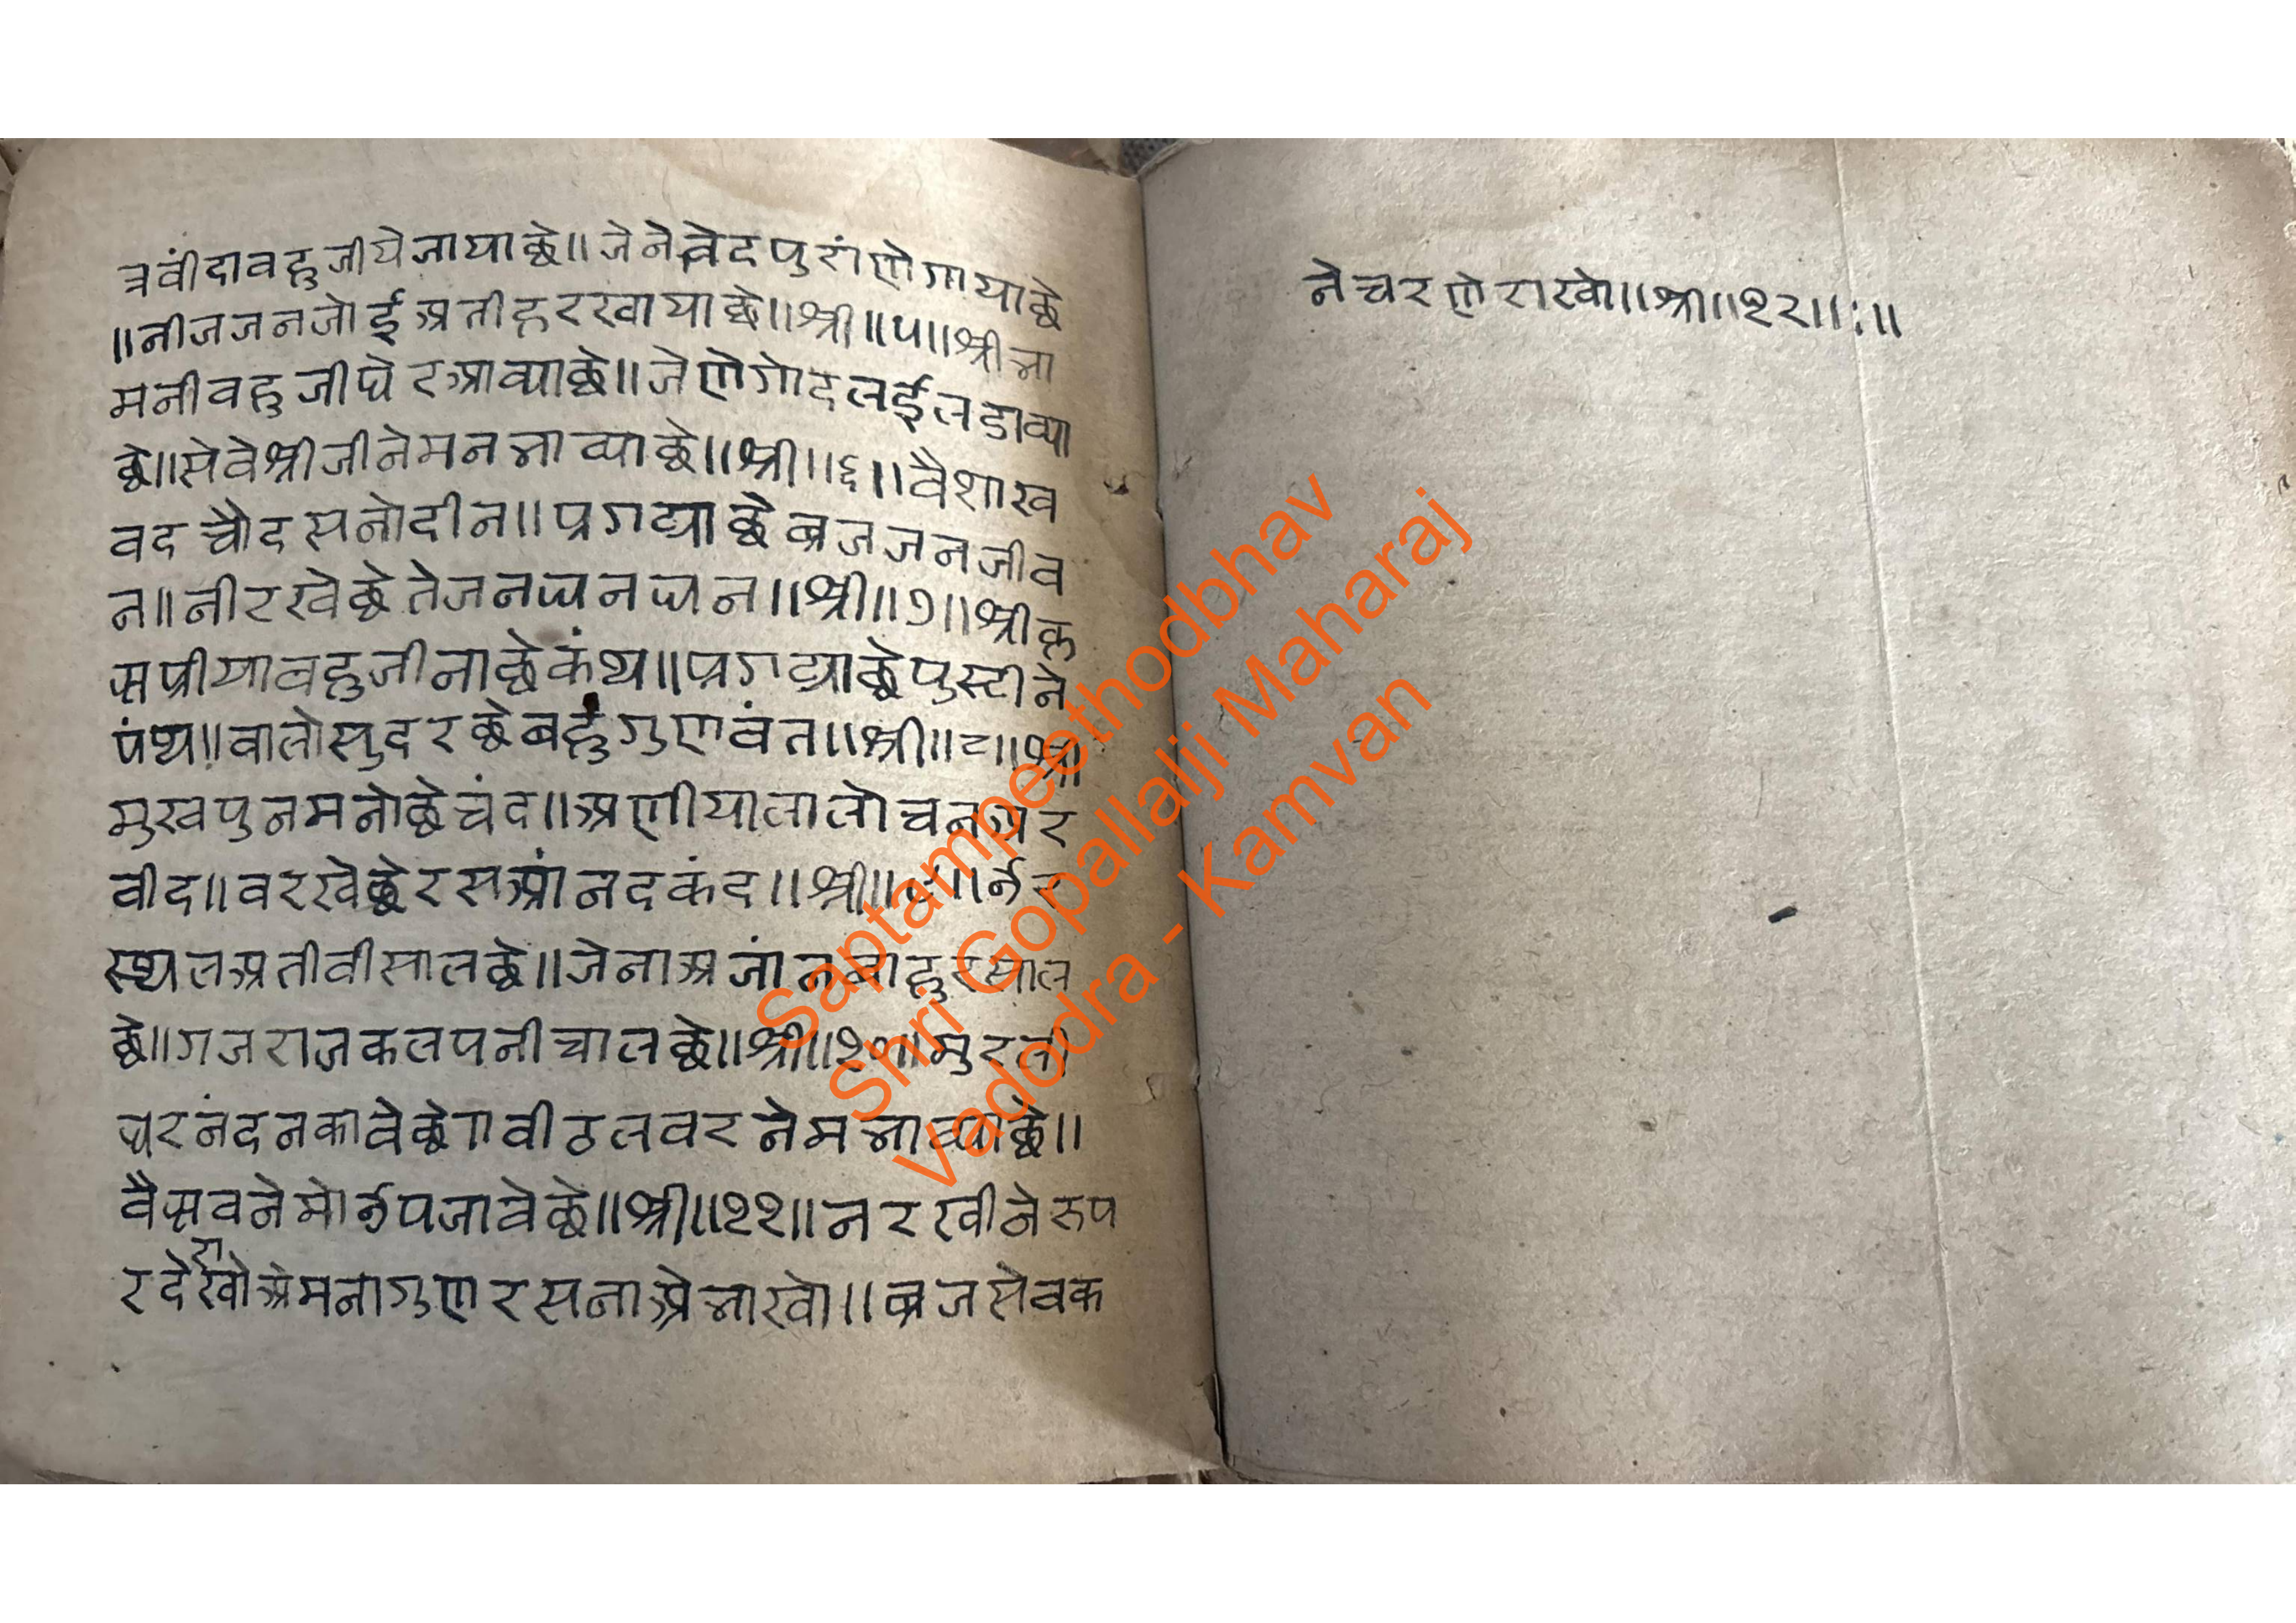 त्रवींदावहुजीयेजायाछे॥जेनेवेदपुरांणेगायाछे
॥नीजजनजोईअतीहरखायाछे॥श्री॥५॥श्रीभा
मनीवहुजीघेरआव्याछे॥जेणेगोदलईलडाव्या
छे॥सेवेश्रीजीनेमनभाव्याछे॥श्री॥६॥वैशाख
वदचौदसनोदीन॥प्रगट्याछेब्रजजनजीव
न॥नीरखेछेतेजनधनधन॥श्री॥७॥श्रीकृ
ष्णप्रीयावहुजीनाछेकंथ॥प्रगट्याछेपुस्टीने
पंथ॥वालोसुदरछेबहुगुणवंत॥श्री॥८॥श्री
मुखपुनमनोछेचंद॥अणीयालालोचनअर
वीद॥वरखेछेरसआंनदकंद॥श्री॥९॥उर
स्थलअतीवीसालछे॥जेनाअजांनबाहुरसाल
छे॥गजराजकलपनीचालछे॥श्री॥१०॥मुरली
धरनंदनकावेछे॥वीठलवरनेमनभाव्याछे॥
वैष्णवनेमोउपजावेछे॥श्री॥११॥नरखीनेरुप
रदेराखोअेमनागुणरसनाअेभाखो॥ब्रजसेवक
नेचरणेराखो॥श्री॥१२॥:॥
Saptampeethodbhav
Shri Gopallalji Maharaj
Vadodra - Kamvan